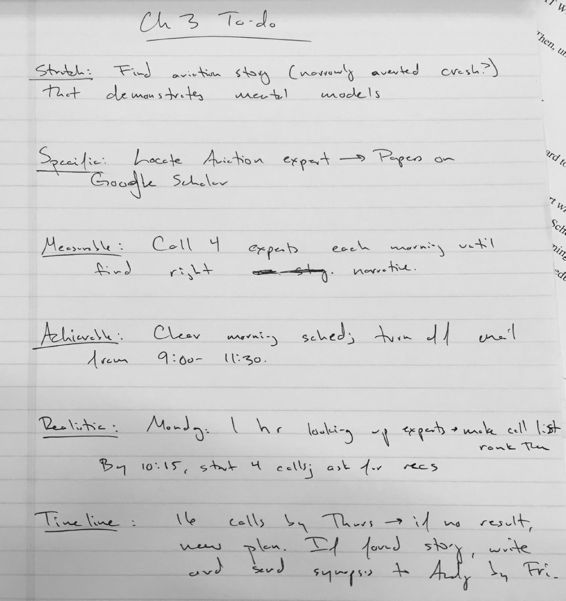 Ch 3 To-do
Stretch: Find aviation story (narrowly averted crash?)
that demonstrates mental models
Specific: Locate Aviation expert → Papers on
Google Scholar
Measurable: Call 4 experts each morning until
find right narrative.
Achievable: Clear morning sched; turn off email
from 9:00- 11:30.
Realistic: Monday: 1 hr looking up experts → make call list
rank them
By 10:15, start 4 calls; ask for recs
Timeline: 16 calls by Thurs → if no result,
new plan. If found story, write
and send synopsis to Andy by Fri.